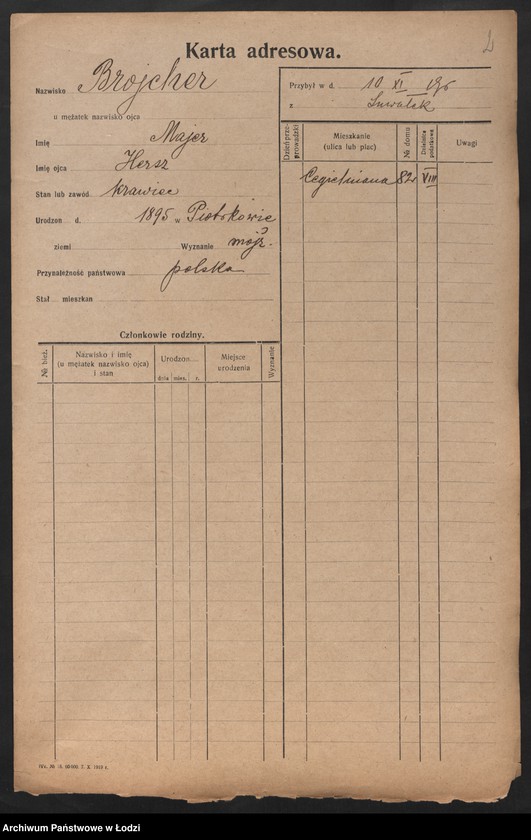 L
Karta adresowa.
Nazwisko Brojcher
u mężatek nazwisko ojca
Imię Majer
Imię ojca Hersz
Stan lub zawód krawiec
Urodzon d. 1895 w Piotrkowie
ziemi Wyznanie mojż.
Przynależność państwowa polska
Stał mieszkan
Przybył w d. 10 XI
z Suwałek
Dzień przeprowadzki
Mieszkanie (ulica lub plac)
№ domu
Dzielnica podatkowa
Uwagi
Cegielniana 82 VIII
Członkowie rodziny.
№ bież.
Nazwisko i imię
(u mężatek nazwisko ojca)
i stan
Urodzon....
dnia mies. r.
Miejsce
urodzenia
Wyznanie
Archiwum Państwowe w Łodzi